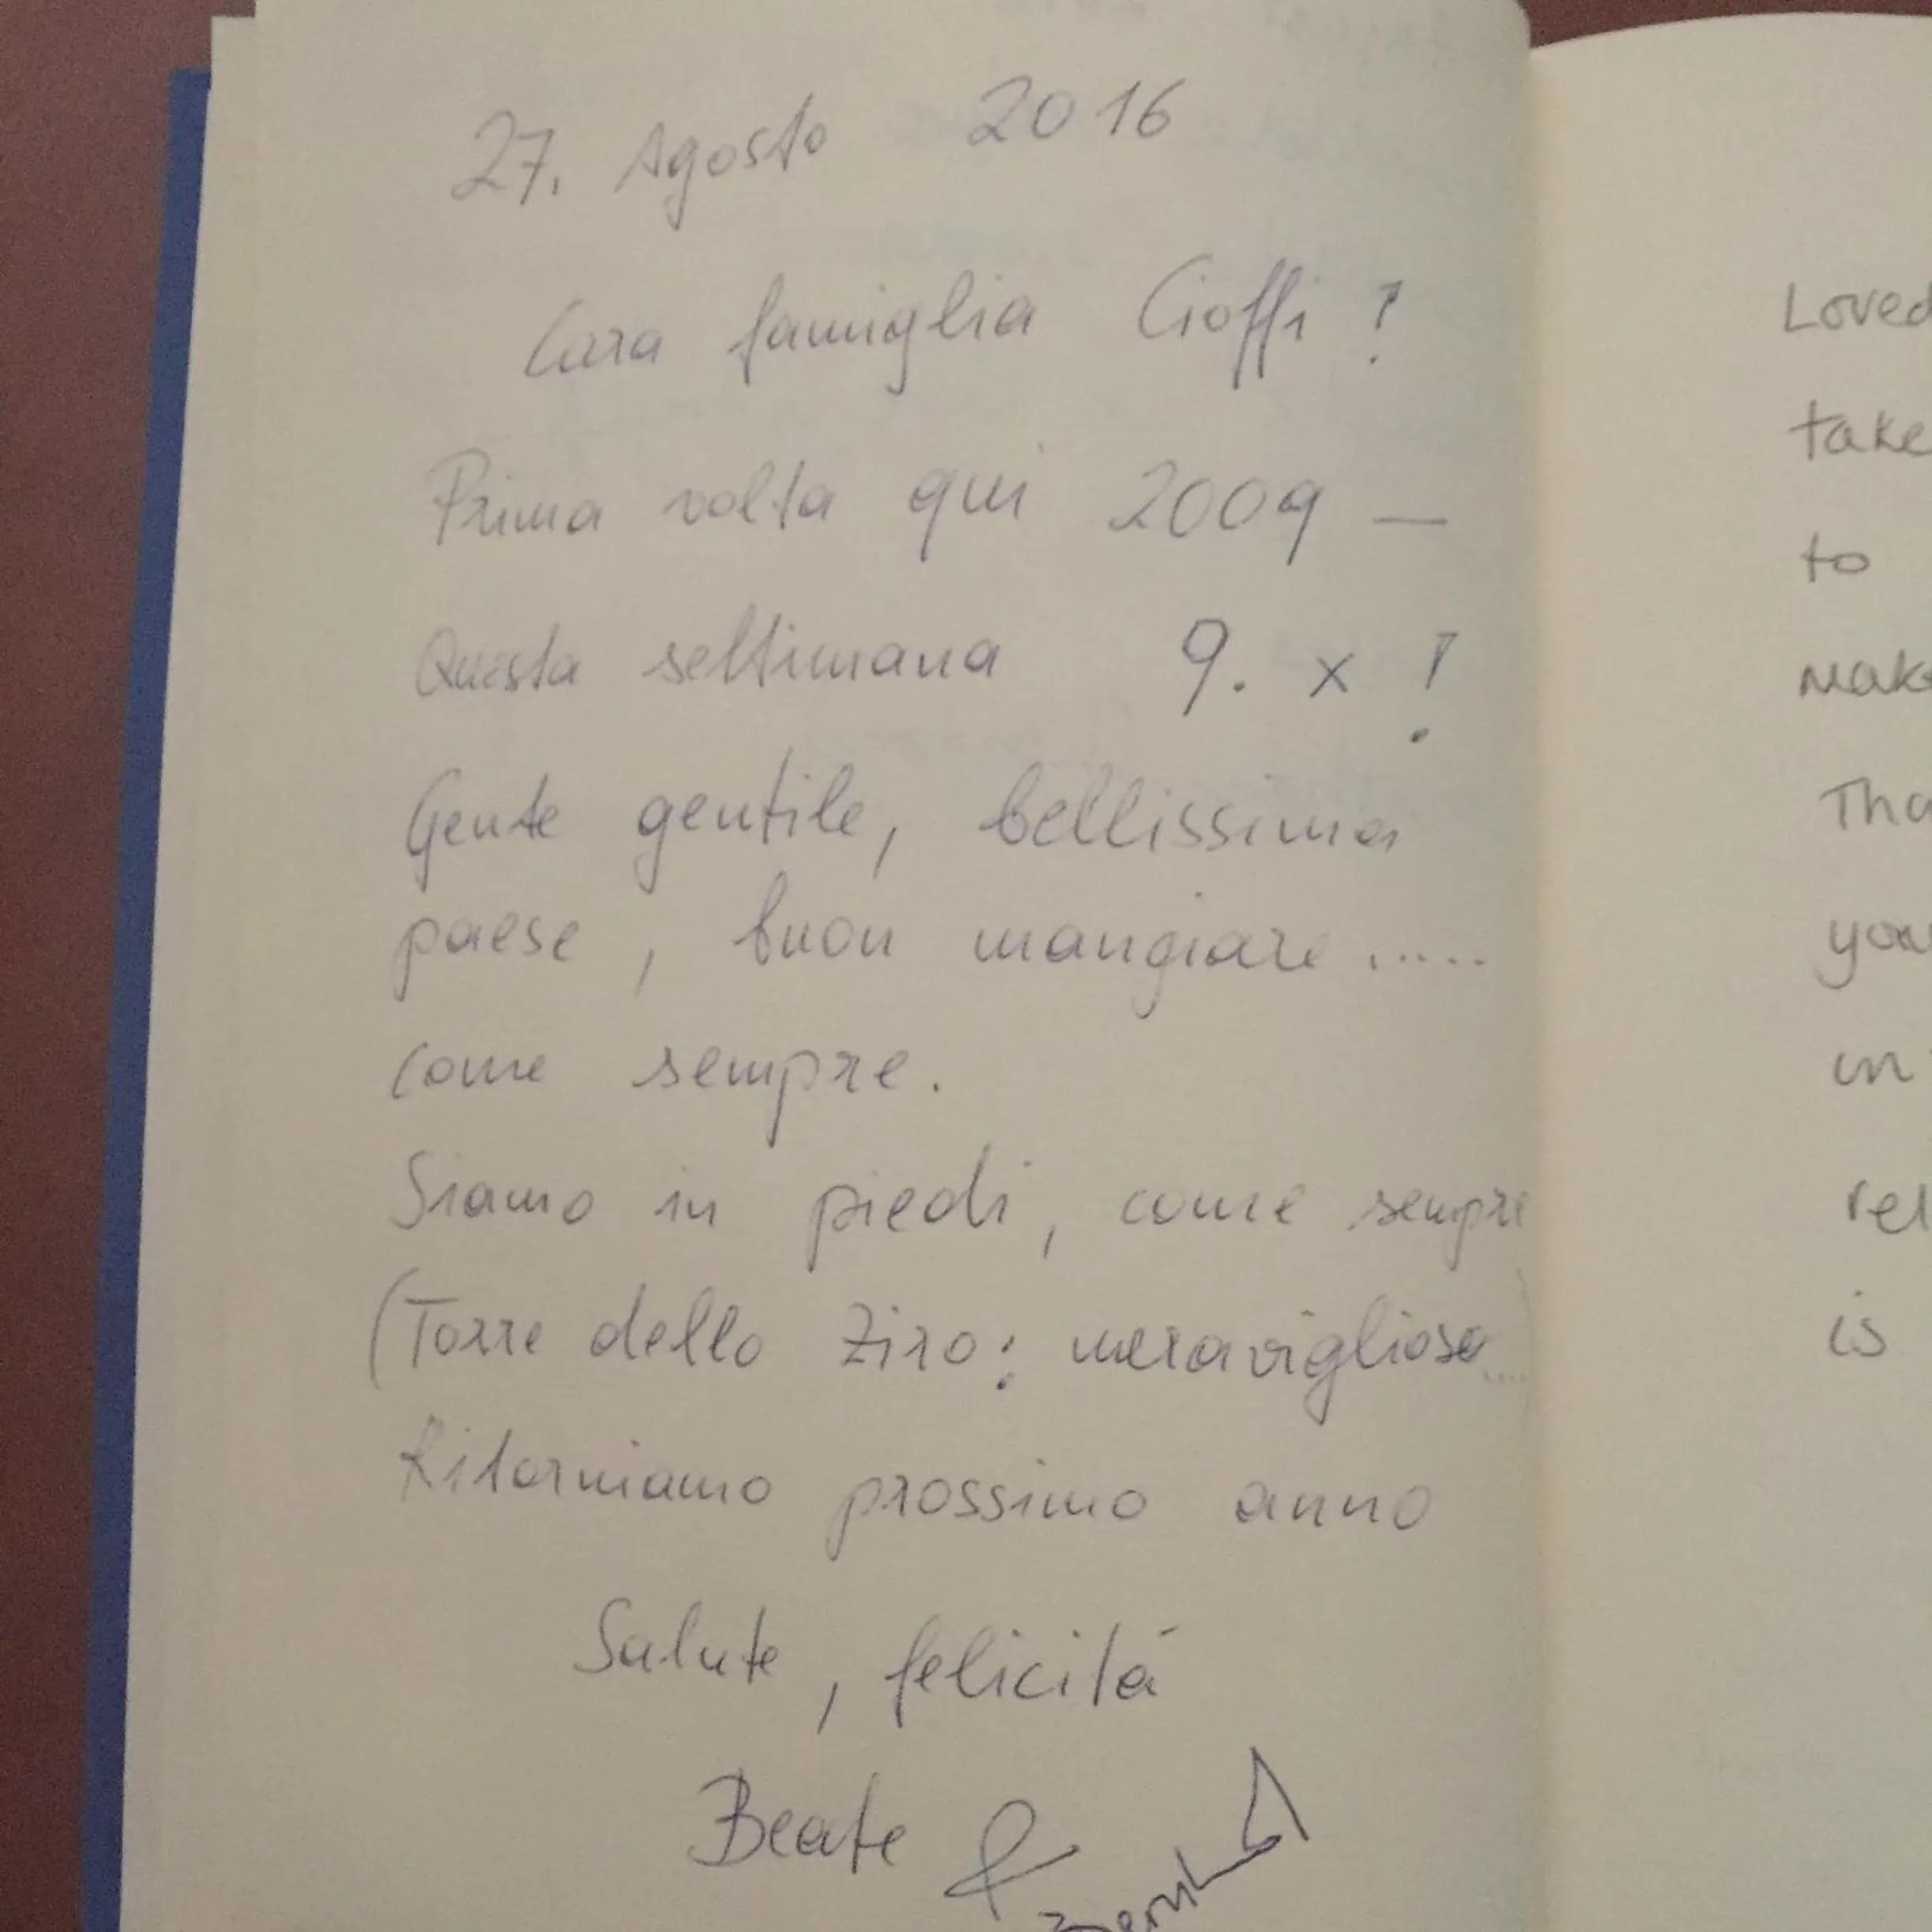 27. Agosto 2016
Cara famiglia Cioffi !
Prima volta qui 2009 —
Questa settimana 9. x !
Gente gentile, bellissima
paese, buon mangiare.....
come sempre.
Siamo in piedi, come sempre
(Torre dello Ziro: meraviglioso....)
Ritorniamo prossimo anno
Salute, felicitá
Beate &
Loved
take
to
make
Tha
you
in
rel
is